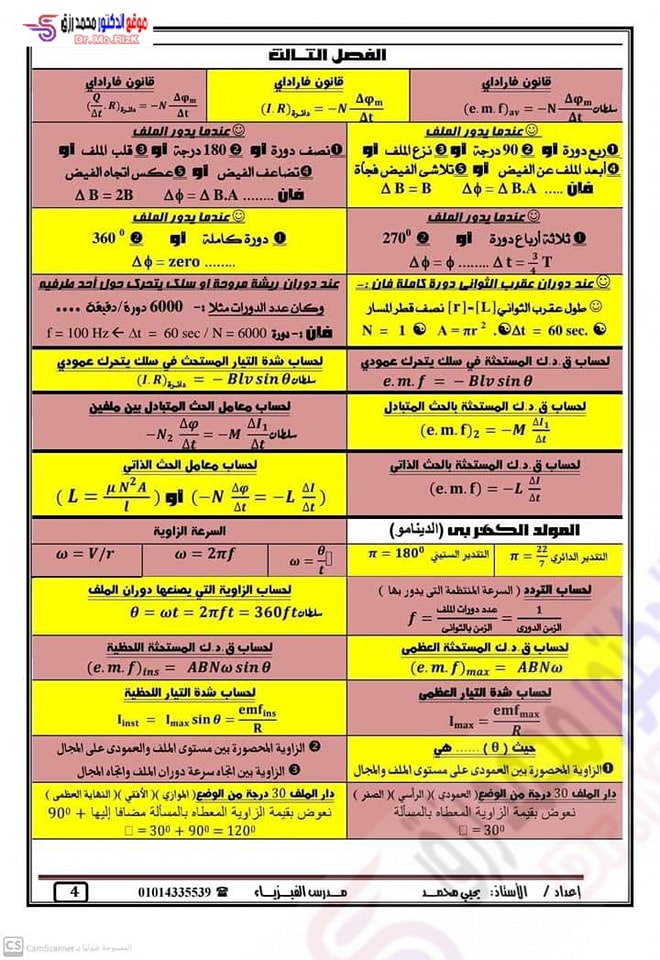 موقع الدكتور محمد رزق
Dr.Mo.RizK
الفصل الثالث
قانون فاراداي
سلطان (e.m.f)av = −N Δφm/Δt
قانون فاراداي
(I.R)دائرة = −N Δφm/Δt
قانون فاراداي
(Q/Δt .R)دائرة = −N Δφm/Δt
☺عندما يدور الملف
❶ربع دورة أو ❷ 90 درجة أو ❸ نزع الملف أو
❹أبعد الملف عن الفيض أو ❺تلاشى الفيض فجأة
فان ..... Δϕ = ΔB.A ΔB = B
☺عندما يدور الملف
❶نصف دورة أو ❷ 180 درجة أو ❸ قلب الملف أو
❹تضاعف الفيض أو ❺عكس اتجاه الفيض
فان ........ Δϕ = ΔB.A ΔB = 2B
☺عندما يدور الملف
❶ ثلاثة أرباع دورة أو ❷ 270⁰
Δϕ = ϕ ........ Δt = 3/4 T
☺عندما يدور الملف
❶ دورة كاملة أو ❷ 360⁰
Δϕ = zero ........
☺عند دوران عقرب الثوانى دورة كاملة فان :-
☺ طول عقرب الثواني[L]=[r] نصف قطر المسار
N = 1 ☯ A = πr² .☯Δt = 60 sec. ☯
عند دوران ريشة مروحة او سلك يتحرك حول أحد طرفيه
وكان عدد الدورات مثلا :- 6000 دورة/دقيقة ....
فان :- دورة f = 100 Hz ← Δt = 60 sec / N = 6000
لحساب ق.د.ك المستحثة في سلك يتحرك عمودي
e.m.f = −Blv sin θ
لحساب شدة التيار المستحث في سلك يتحرك عمودي
سلطان (I.R)دائرة = −Blv sin θ
لحساب ق.د.ك المستحثة بالحث المتبادل
(e.m.f)₂ = −M ΔI₁/Δt
لحساب معامل الحث المتبادل بين ملفين
سلطان −N₂ Δφ/Δt = −M ΔI₁/Δt
لحساب ق.د.ك المستحثة بالحث الذاتي
(e.m.f) = −L ΔI/Δt
لحساب معامل الحث الذاتي
(L = μN²A/l) أو (−N Δφ/Δt = −L ΔI/Δt)
المولد الكهربى (الدينامو)
السرعة الزاوية
التقدير الدائري π = 22/7
التقدير الستيني π = 180⁰
ω = θ/t
ω = 2πf
ω = V/r
لحساب التردد ( السرعة المنتظمة التى يدور بها )
f = عدد دورات الملف/الزمن بالثوانى = 1/الزمن الدورى
لحساب الزاوية التي يصنعها دوران الملف
سلطان θ = ωt = 2πft = 360ft
لحساب ق.د.ك المستحثة العظمى
(e.m.f)max = ABNω
لحساب ق.د.ك المستحثة اللحظية
(e.m.f)ins = ABNω sin θ
لحساب شدة التيار العظمى
Imax = emfmax/R
لحساب شدة التيار اللحظية
Iinst = Imax sin θ = emfins/R
حيث ( θ ) ...... هي
❶الزاوية المحصورة بين العمودى على مستوى الملف والمجال
❷ الزاوية المحصورة بين مستوى الملف والعمودى على المجال
❸ الزاوية بين اتجاه سرعة دوران الملف واتجاه المجال
دار الملف 30 درجة من الوضع( العمودي )( الرأسي )( الصفر )
نعوض بقيمة الزاوية المعطاه بالمسألة
□ = 30⁰
دار الملف 30 درجة من الوضع( الموازي )( الأفقي )( النهاية العظمى )
نعوض بقيمة الزاوية المعطاه بالمسألة مضافا إليها + 90⁰
□ = 30⁰ + 90⁰ = 120⁰
إعداد / الأستاذ: يحيي محمد مدرس الفيزياء ☎ 01014335539 4
CS CamScanner الممسوحة ضوئيا بـ